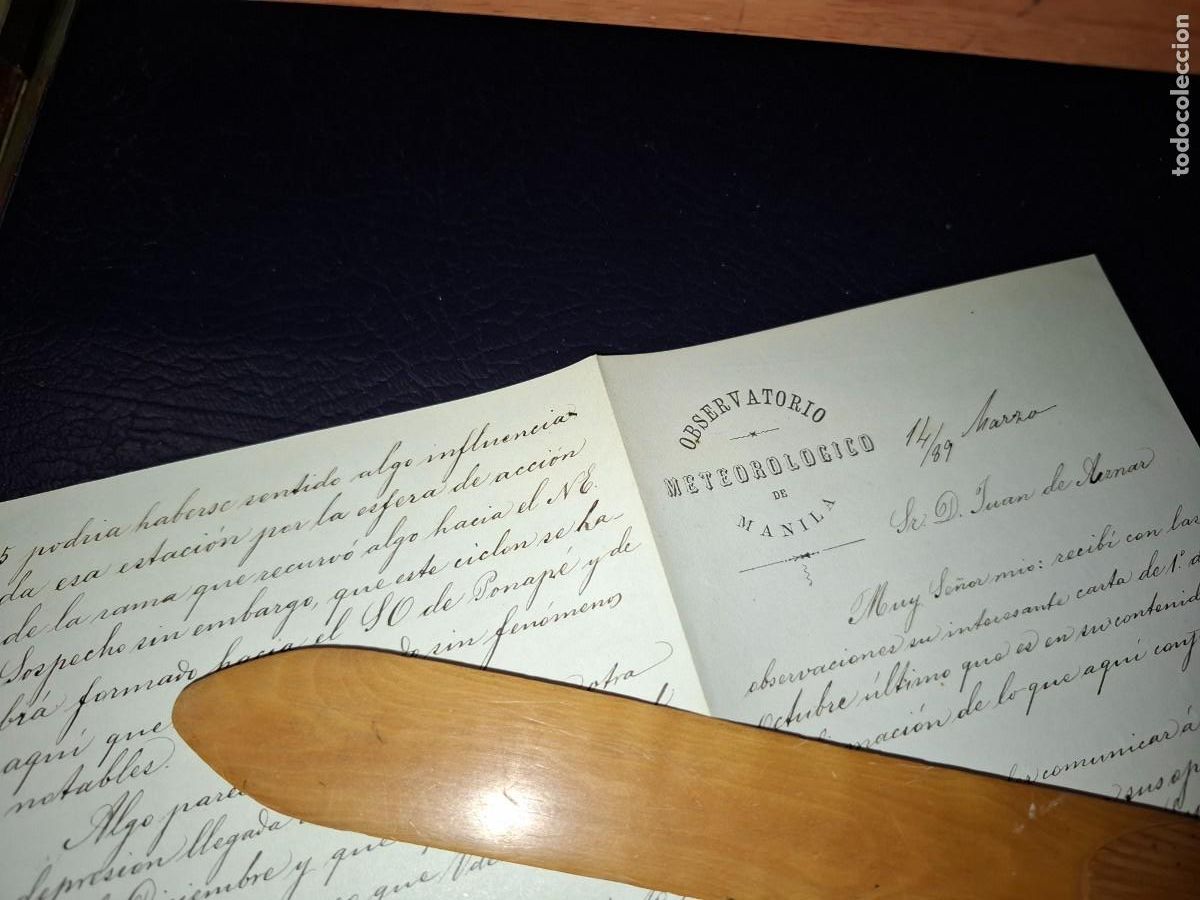 todocoleccion
5 podria haberse sentido algo influencia
da esa estación por la esfera de acción
de la rama que recurvó algo hacia el NE.
Sospecho sin embargo, que este ciclon se ha-
brá formado hacia el SO de Ponapé y de
aquí que sin fenómenos
notables. otra
Algo
depresión llegada
Diciembre y que
que
OBSERVATORIO
METEOROLOGICO
DE
MANILA
14/89 Marzo
Sr. D. Juan de Aznar
Muy Señor mio: recibí con las
observaciones su interesante carta de 1º. d
Octubre último que es en su contenid
mación de lo que aquí conj
comunicará
sus op